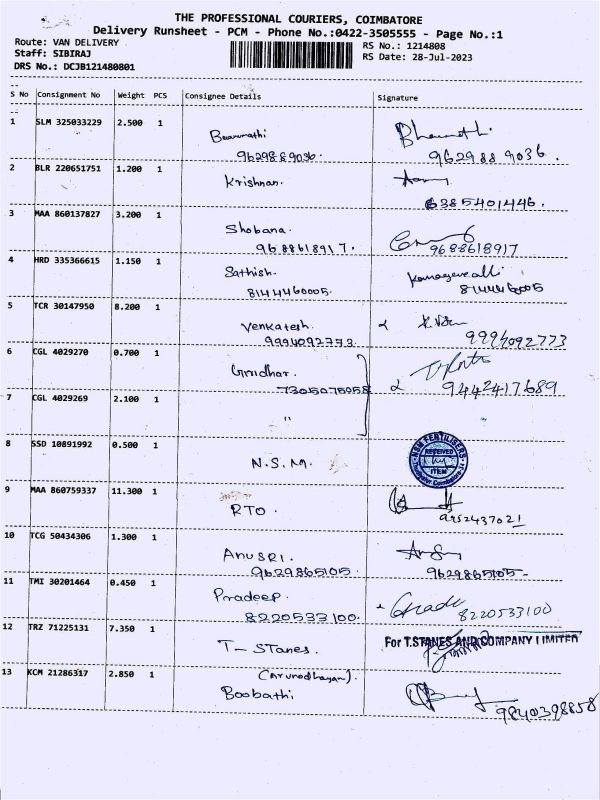 THE PROFESSIONAL COURIERS, COIMBATORE
Delivery Runsheet - PCM - Phone No.:0422-3505555 - Page No.:1
Route: VAN DELIVERY RS No.: 1214808
Staff: SIBIRAJ RS Date: 28-Jul-2023
DRS No.: DCJB121480801
S No Consignment No Weight PCS Consignee Details Signature
1 SLM 325033229 2.500 1
9629889036 9629889036.
2 BLR 220651751 1.200 1 Krishnan.
6385401446.
3 MAA 860137827 3.200 1 Shobana.
9688618917. 9688618917
4 HRD 335366615 1.150 1 Sathish.
8144460005. 8144460005
5 TCR 30147950 8.200 1 Venkatesh.
9994092773 9994092773
6 CGL 4029270 0.700 1
7305075958 9442417689
7 CGL 4029269 2.100 1 "
8 SSD 10891992 0.500 1 N.S.M. NSM FERTILISERS RECEIVED ITEM
9 MAA 860759337 11.300 1 RTO.
9952437021
10 TCG 50434306 1.300 1 ANUSRI.
9629865105. 9629865105-
11 TMI 30201464 0.450 1 Pradeep.
8220533100. 8220533100
12 TRZ 71225131 7.350 1 T-Stanes. For T.STANES AND COMPANY LIMITED
13 KCM 21286317 2.850 1 (Arunodhayan).
Boobathi 9840398858